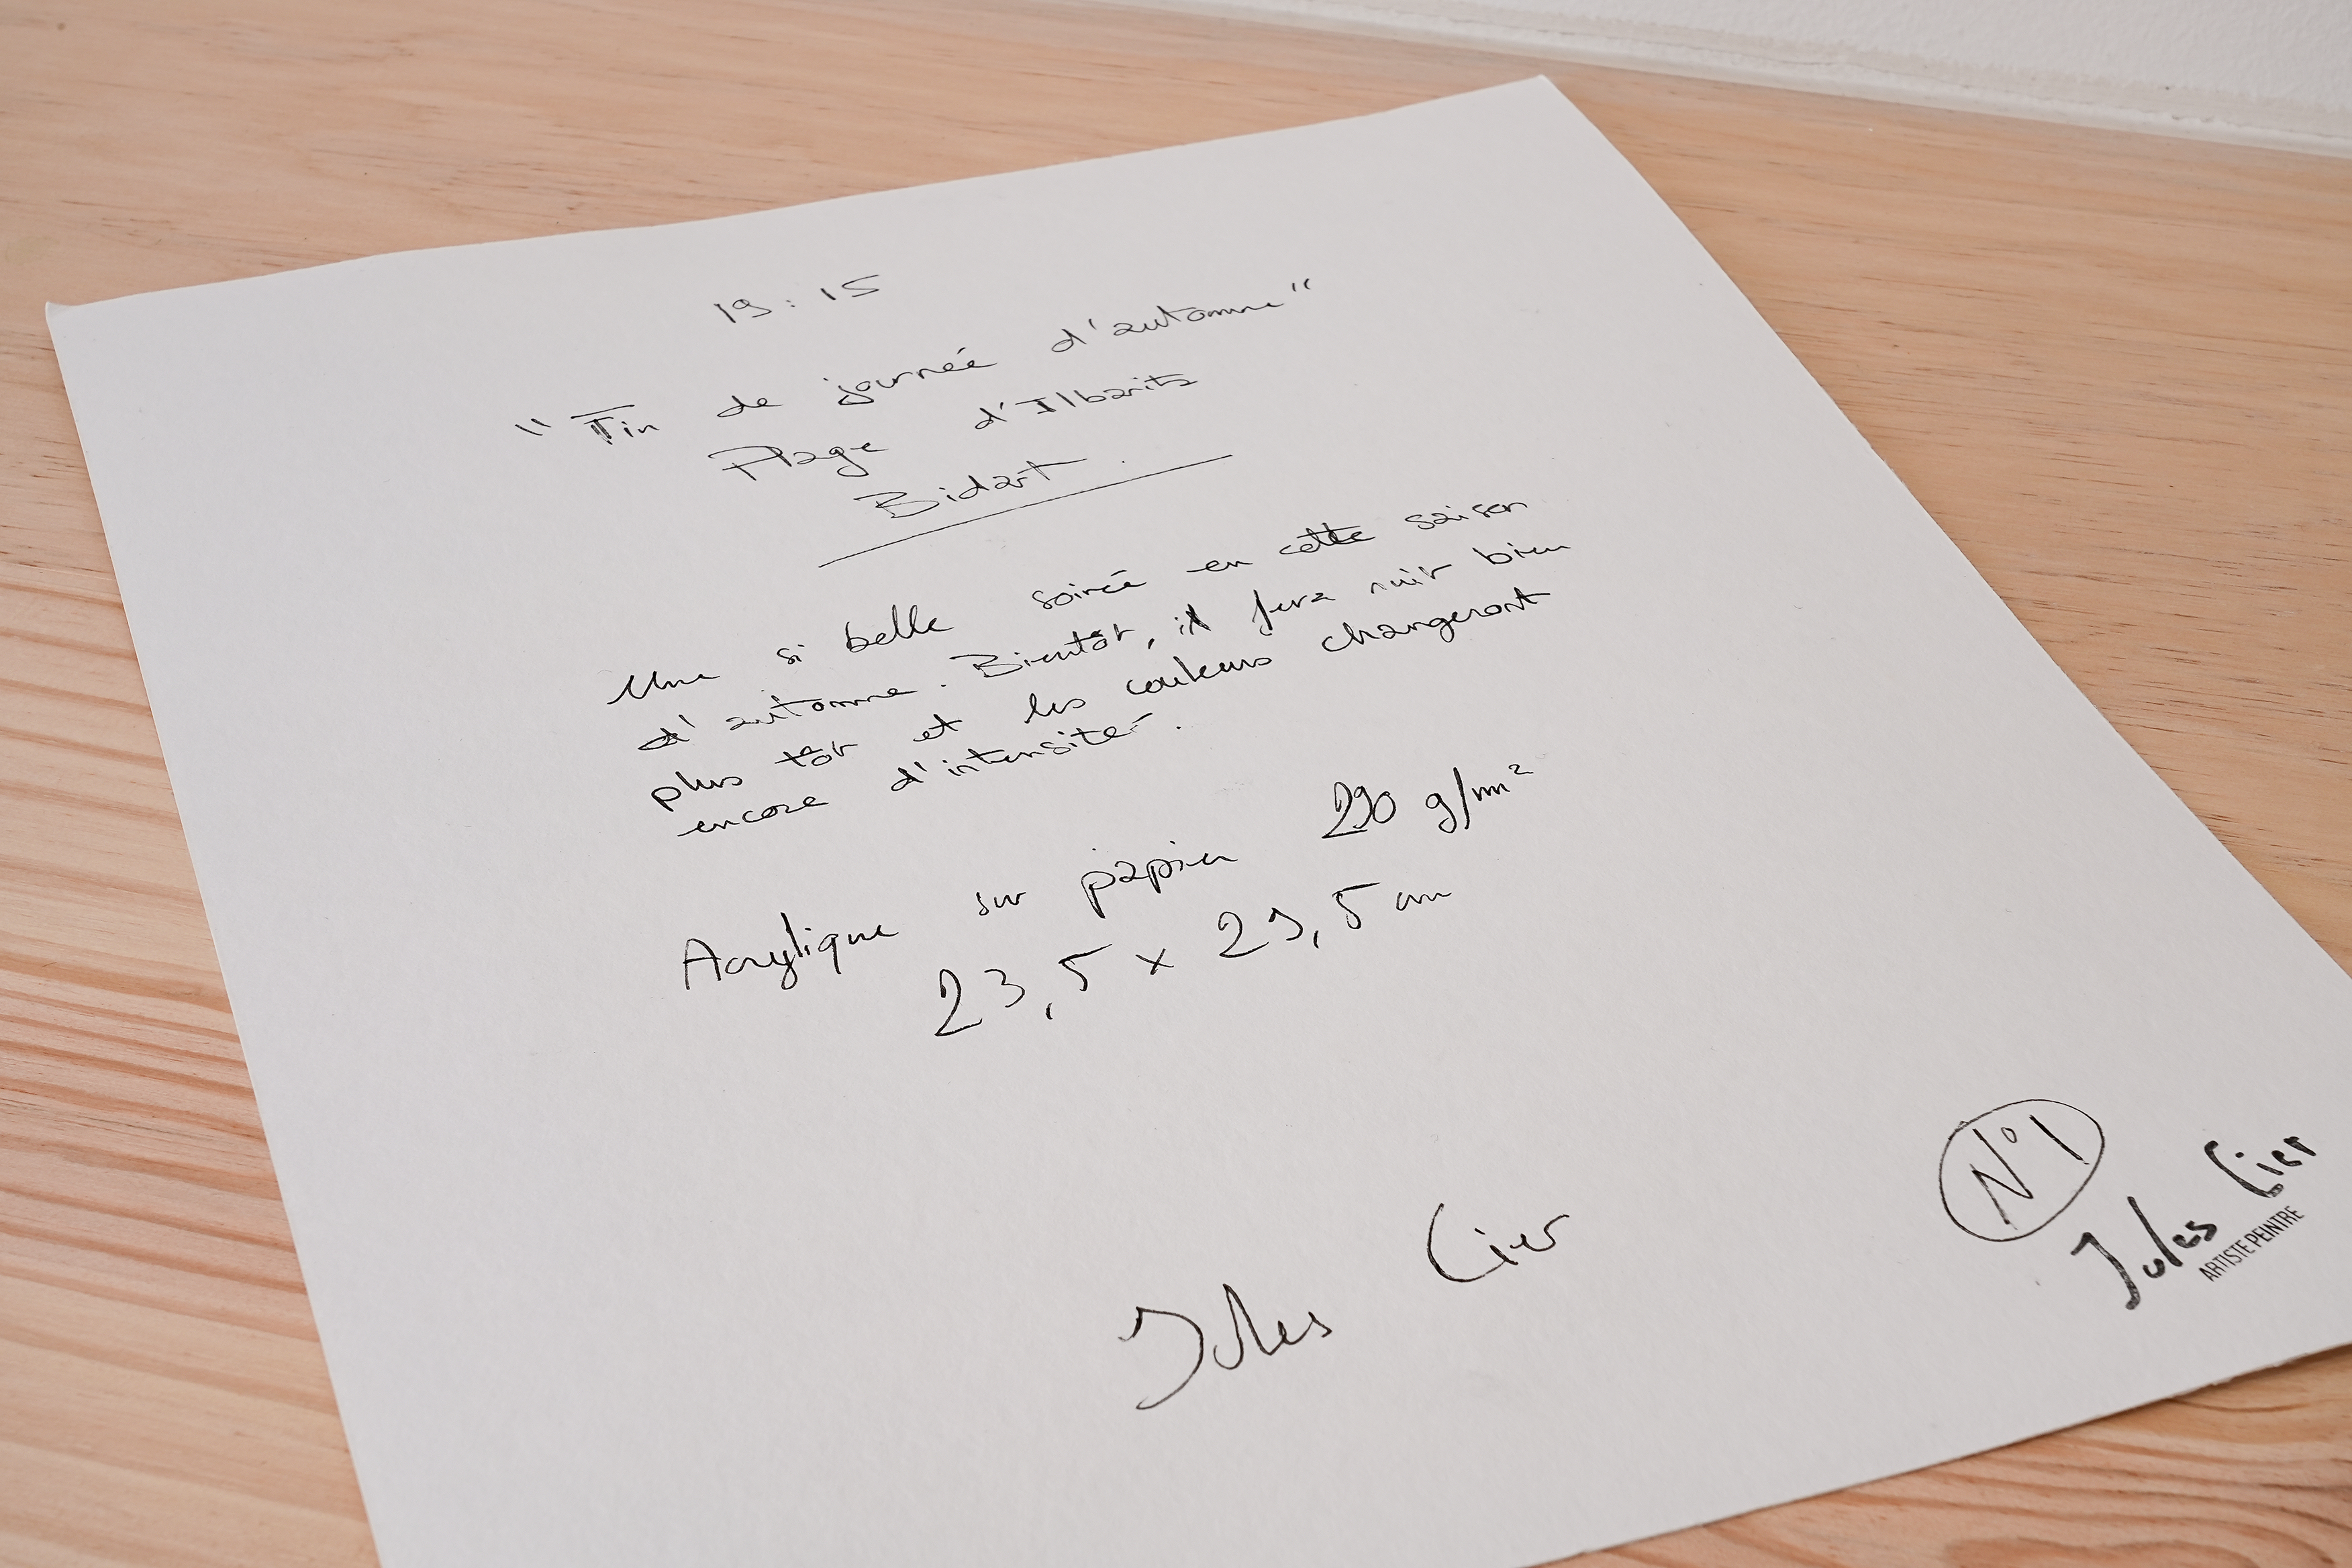 19:15
"Fin de journée d'automne"
Plage d'Ilbaritz
Bidart.
Une si belle soirée en cette saison
d'automne. Bientôt, il fera nuit bien
plus tôt et les couleurs changeront
encore d'intensité.
Acrylique sur papier 290 g/m²
23,5 x 29,5 cm
N°1
Jules Cier
Jules Cier
ARTISTE PEINTRE